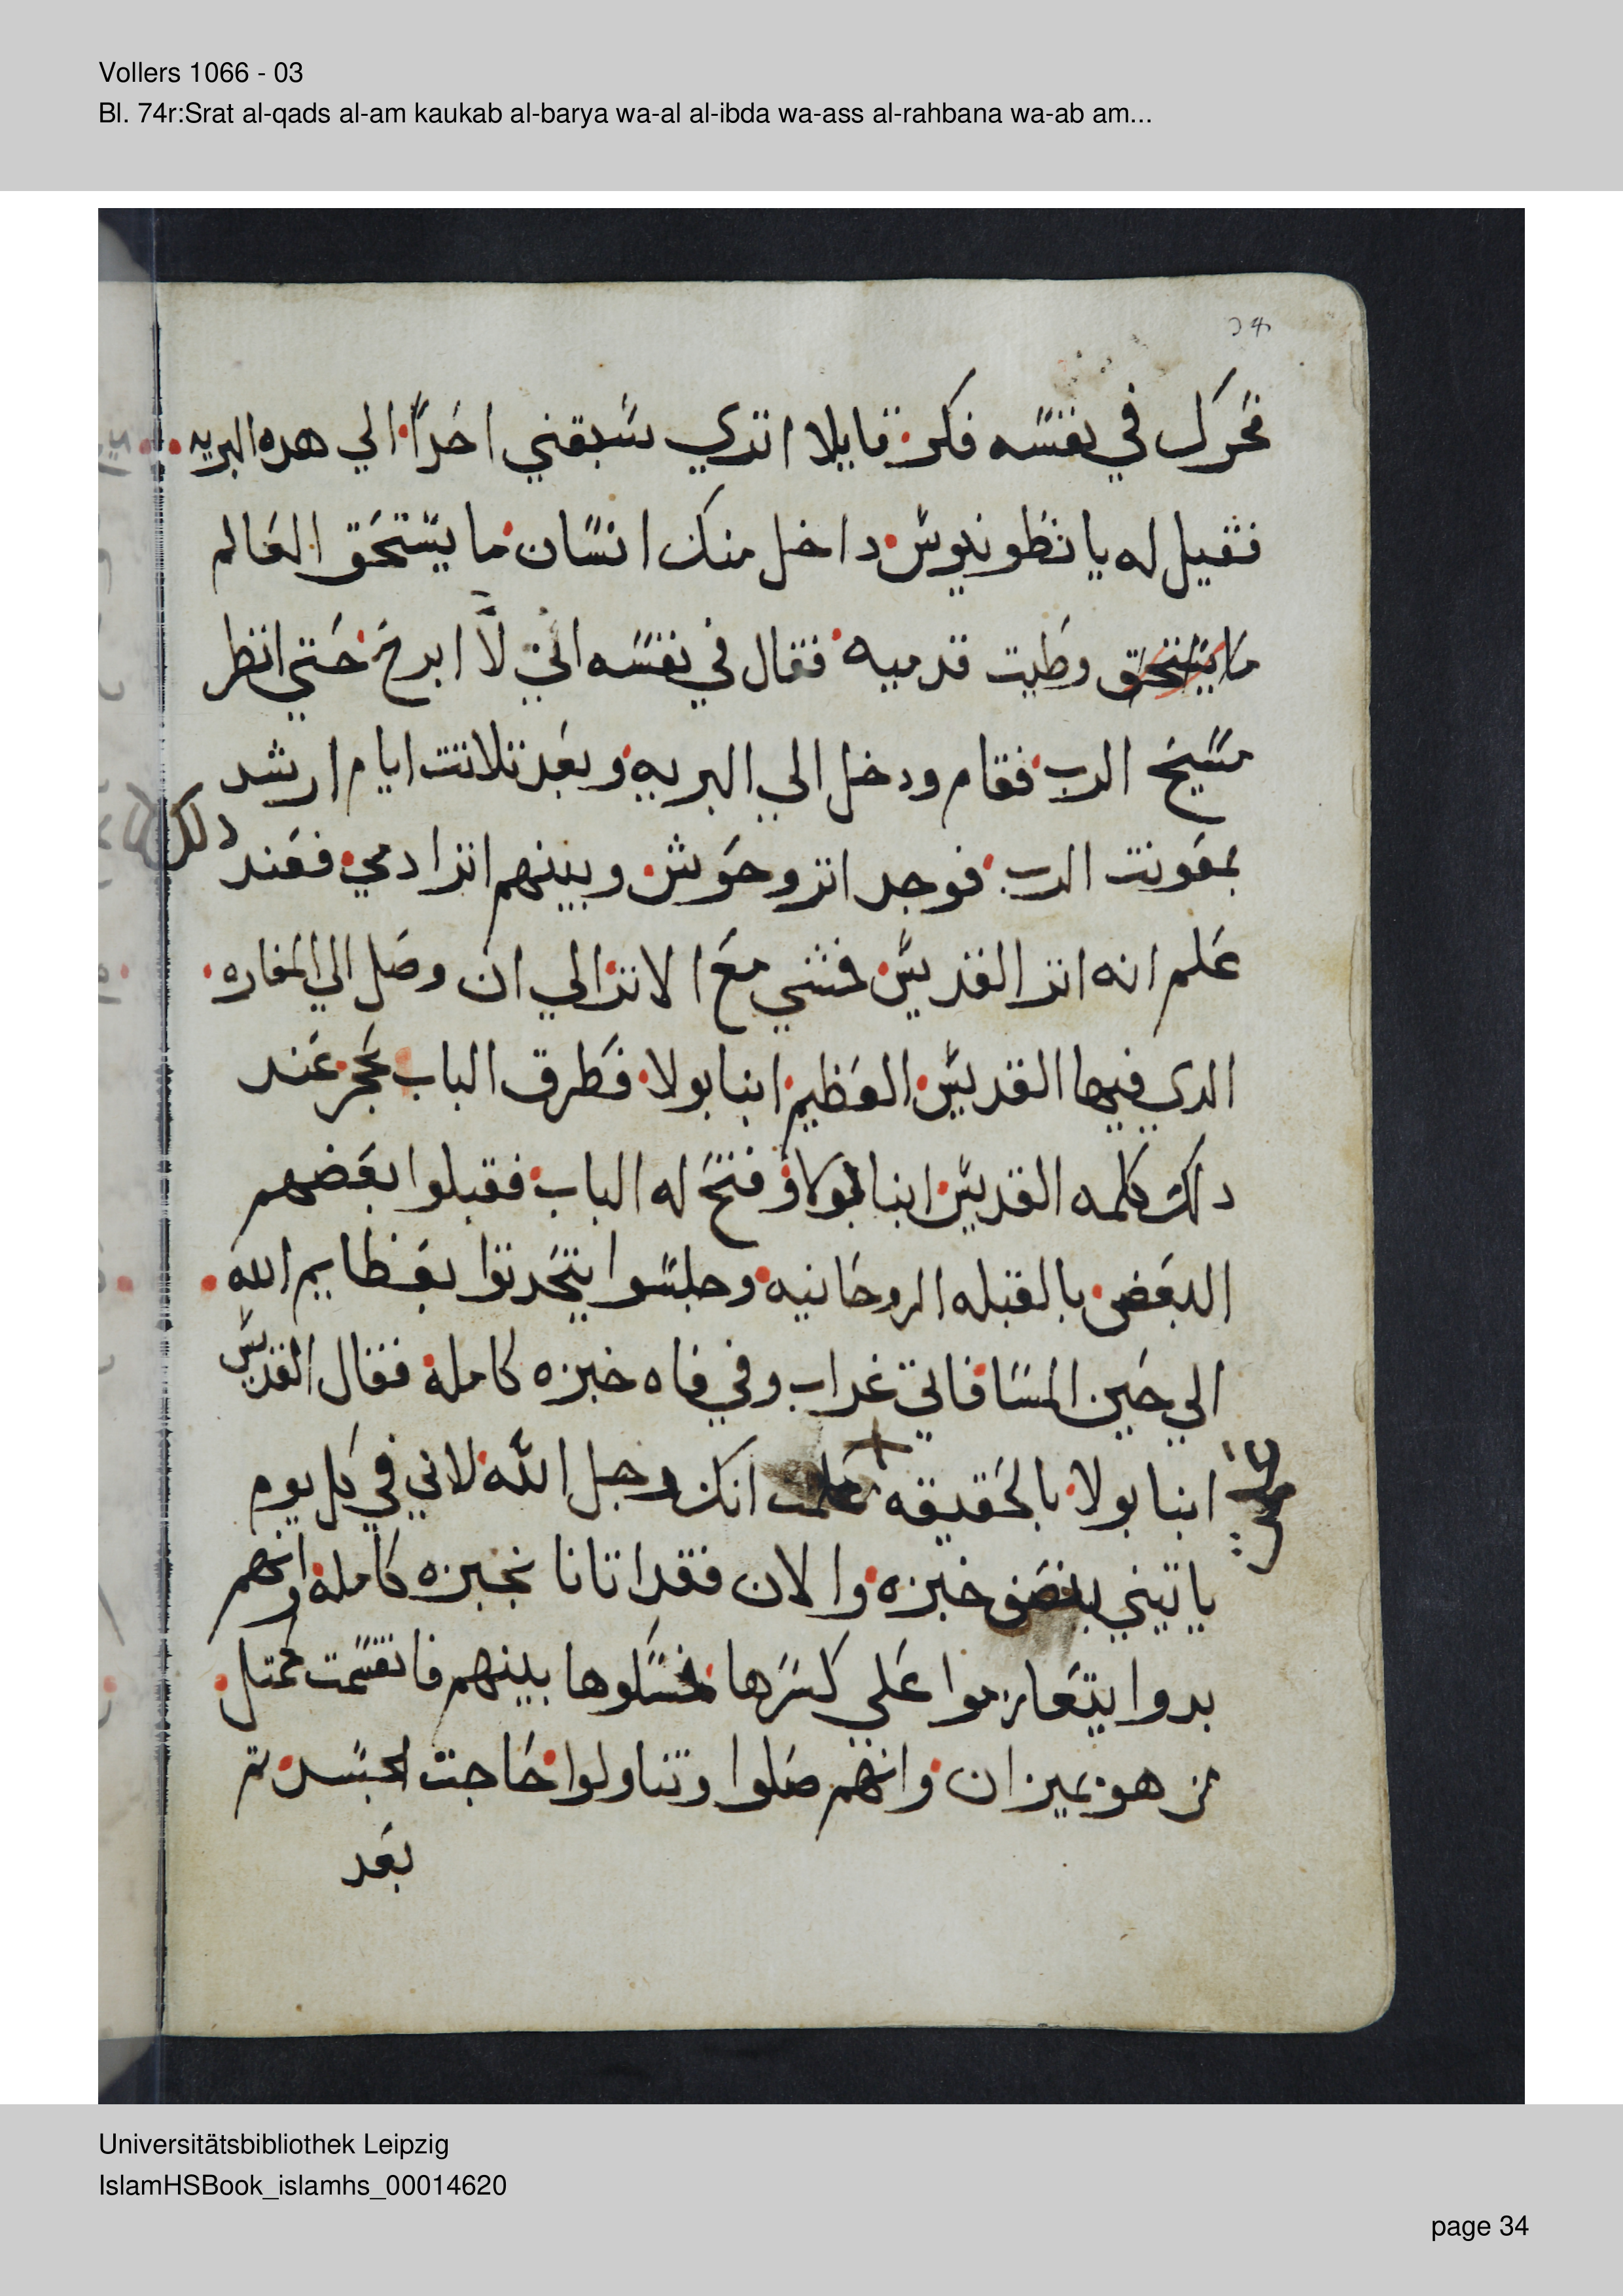 Vollers 1066 - 03
Bl. 74r:Srat al-qads al-am kaukab al-barya wa-al al-ibda wa-ass al-rahbana wa-ab am...
فحرك في نفسه فكر قايلا اتري سبقني احدًا الي هده البريه
فقيل له يا نطونيوس داخل منك انسان ما يستحق العالم
ما يستحق وطيت قدميه فقال في نفسه اني لا ابرح حتي انظر
مسيح الرب فقام ودخل الي البريه وبعد تلاتت ايام ارشد
بمعونت الرب فوجد اتر وحوش وبينهم اتر ادمي فعند دلك
علم انه اتر القديس فمشي مع الاتر الي ان وصل الي المغاره
الدي فيها القديس العظيم ابنا بولا فطرق الباب بحجر عند
دلك كلمه القديس ابنا بولا وفتح له الباب فقبلوا بعضهم
البعض بالقبله الروحانيه وجلسوا يتحدتوا بعظايم الله
الي حين المسا فاتي غراب وفي فاه خبزه كاملة فقال القديس
ابنا بولا بالحقيقه علمت انك رجل الله لاني في كل يوم
ياتيني بنصف خبزه والان فقد اتانا بخبزه كاملة وانهم
بدوا يتعازموا علي كسرها فمسكوها بينهم فانقسمت كمتل
من هو بميزان وانهم صلوا وتناولوا حاجت الجسد تم
بعد
Universitätsbibliothek Leipzig
IslamHSBook_islamhs_00014620
page 34